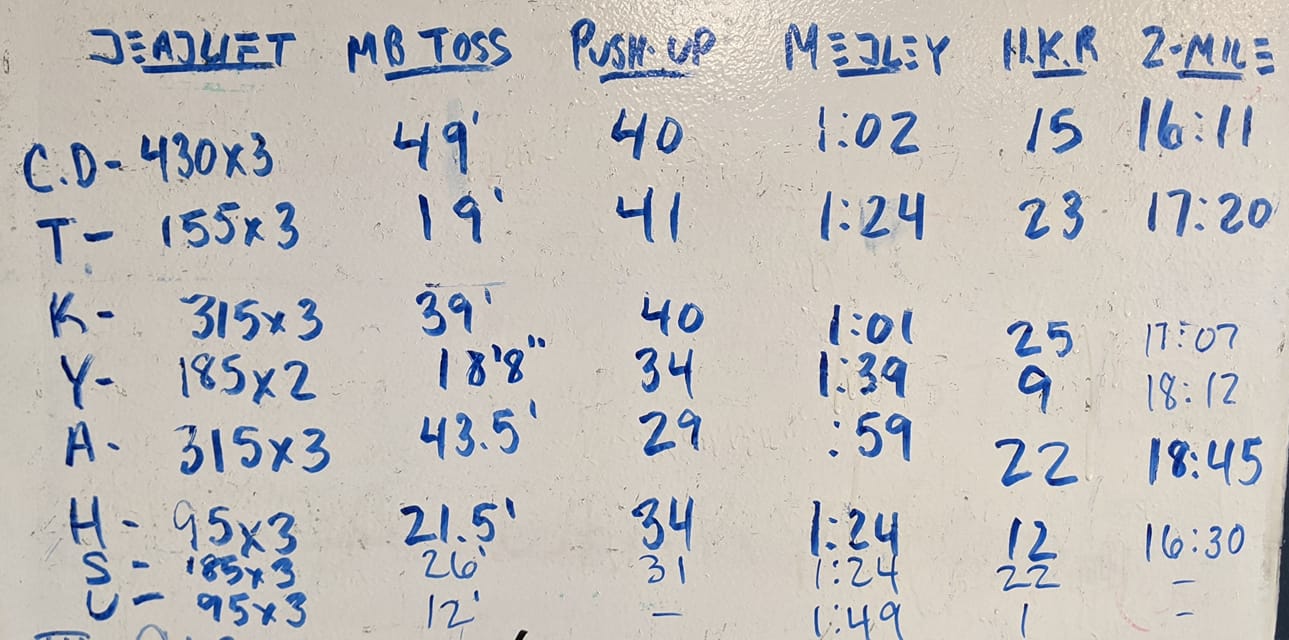 DEADLIFT MB TOSS PUSH-UP MEDLEY H.K.R 2-MILE
C.D- 430x3 49' 40 1:02 15 16:11
T- 155x3 19' 41 1:24 23 17:20
K- 315x3 39' 40 1:01 25 17:07
Y- 185x2 18'8" 34 1:39 9 18:12
A- 315x3 43.5' 29 :59 22 18:45
H- 95x3 21.5' 34 1:24 12 16:30
S- 185x3 26' 31 1:24 22 -
U- 95x3 12' - 1:49 1 -